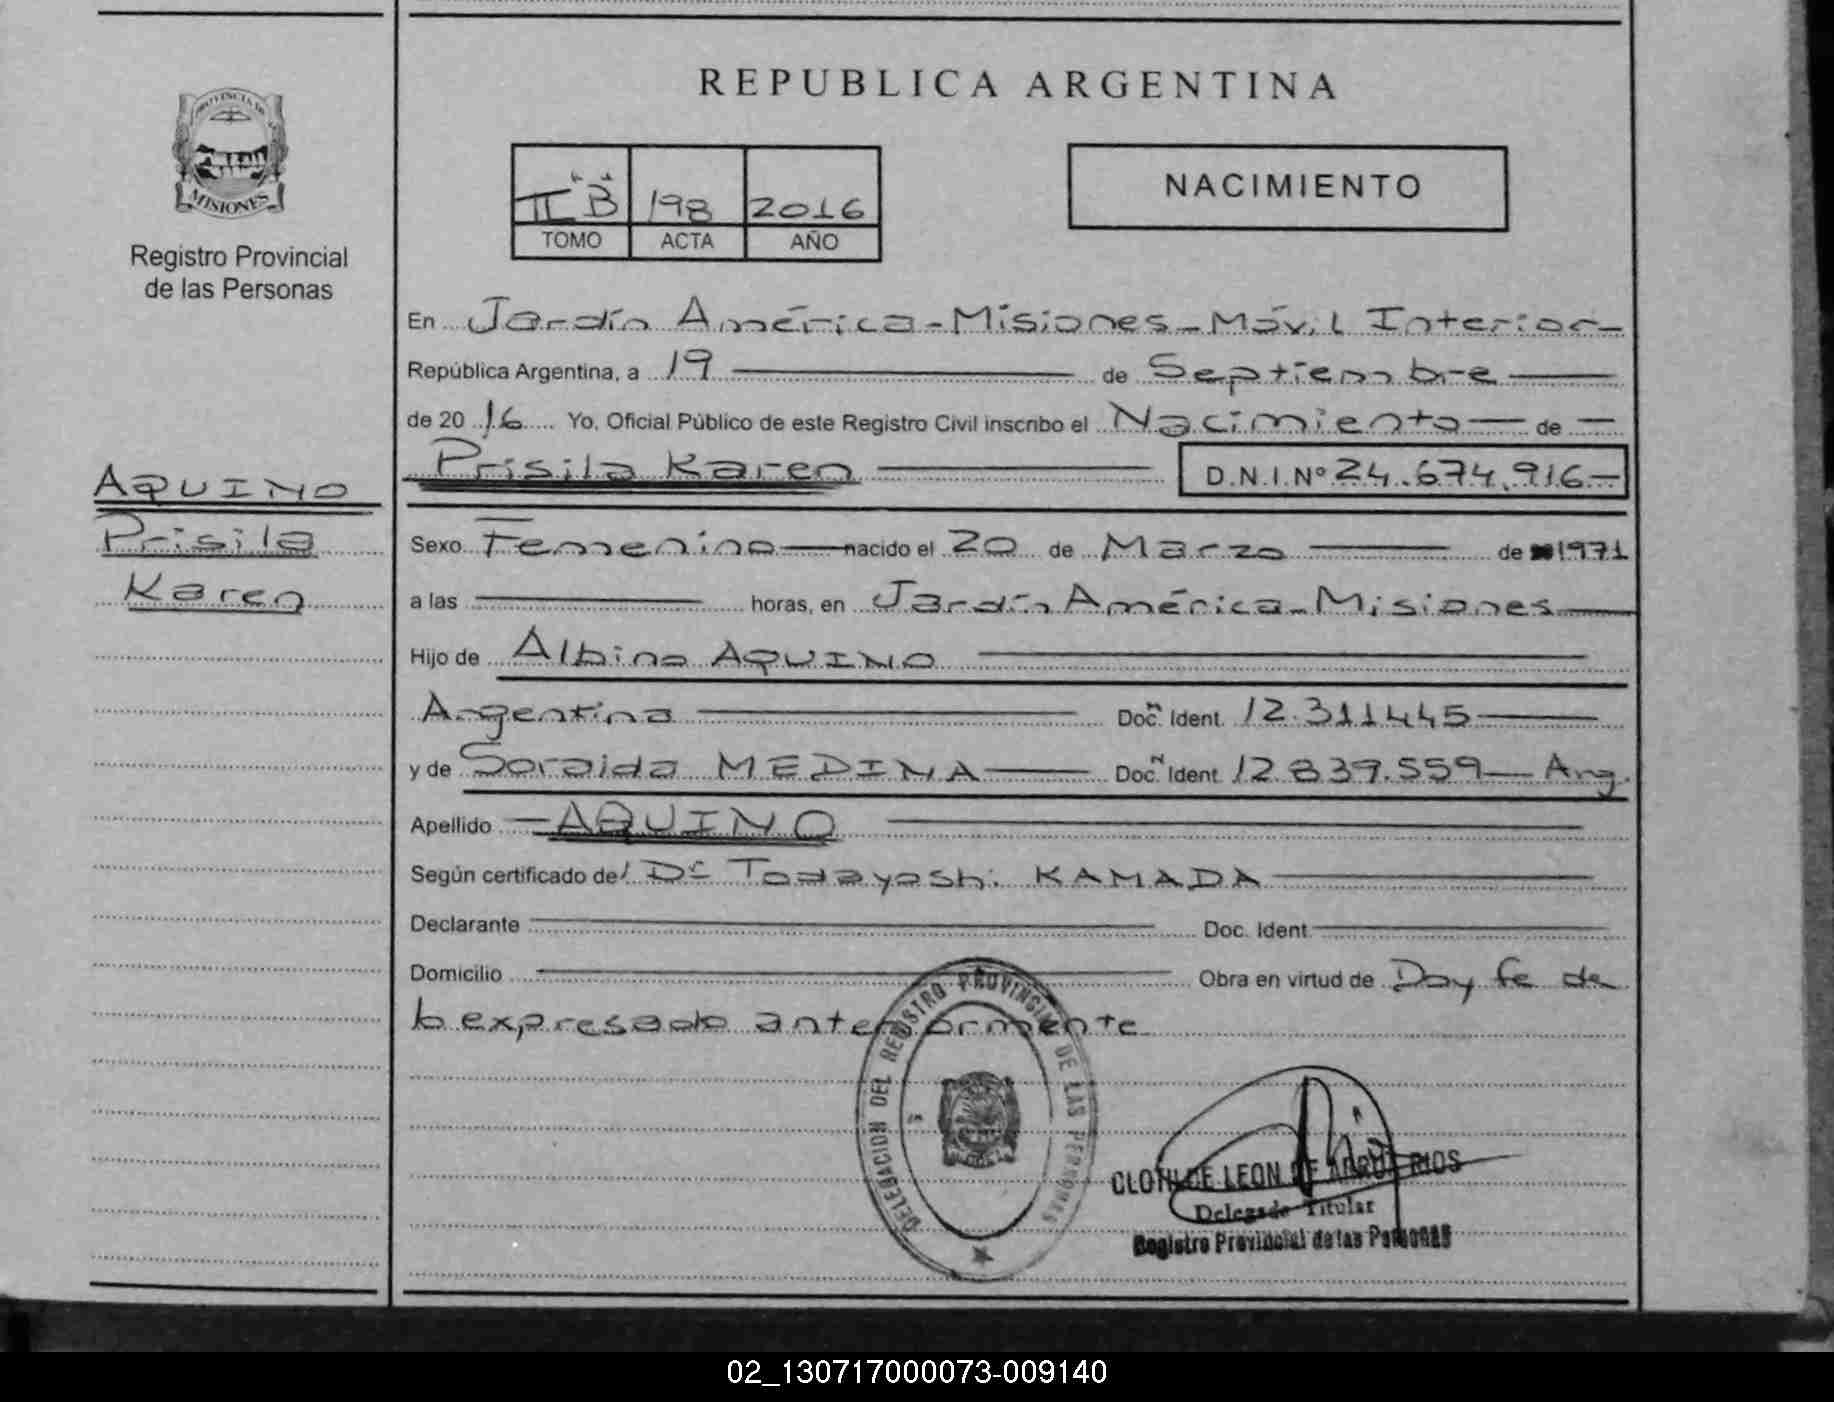 REPUBLICA ARGENTINA
PROVINCIA DE
MISIONES
Registro Provincial
de las Personas
II "B" 198 2016
TOMO ACTA AÑO
NACIMIENTO
En Jardín América - Misiones - Móvil Interior -
República Argentina, a 19 de Septiembre
de 2016 Yo, Oficial Público de este Registro Civil inscribo el Nacimiento de
Prisila Karen D.N.I.Nº 24.674.916
AQUINO
Prisila
Karen
Sexo Femenino nacido el 20 de Marzo de 1971
a las horas, en Jardín América - Misiones
Hijo de Albino AQUINO
Argentina Doc. Ident. 12.311445
y de Soraida MEDINA Doc. Ident. 12839.559 Arg.
Apellido AQUINO
Según certificado del Dr Todayoshi KAMADA
Declarante Doc. Ident.
Domicilio Obra en virtud de Doy fe de
lo expresado anteriormente
DELEGACION DEL REGISTRO PROVINCIAL DE LAS PERSONAS
CLOTILDE LEON DE RIOS
Delegada Titular
Registro Provincial de las Personas
02_130717000073-009140